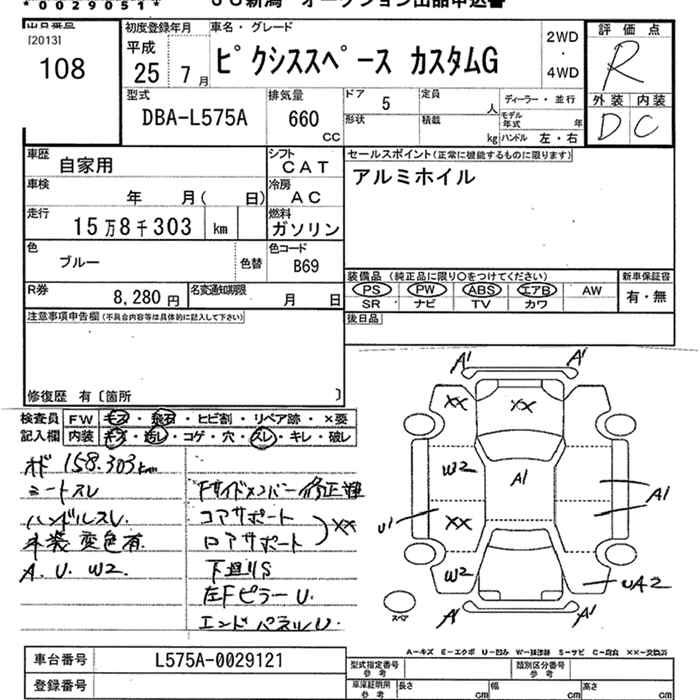 *00290051*
JU新潟 オークション出品申込書
出品番号
[2013]
108
初度登録年月
平成
25年7月
車名・グレード
ピクシススペース カスタムG
2WD
・
4WD
評価点
R
外装 内装
D C
型式
DBA-L575A
排気量
660
CC
ドア
5
定員
人
形状
積載
kg
ディーラー・並行
モデル年式
年
ハンドル 左・右
車歴
自家用
シフト
CAT
車検
年 月( 日)
冷房
AC
走行
15万8千303 km
燃料
ガソリン
色
ブルー
色替
色コード
B69
R券
8,280 円
名変通知期限
月 日
セールスポイント(正常に機能するものに限ります)
アルミホイル
装備品 (純正品に限り○をつけてください)
PS PW ABS エアB AW
SR ナビ TV カワ
新車保証書
有・無
後日品
注意事項申告欄(不具合内容等は具体的に記入して下さい)
修復歴 有〔箇所 〕
検査員 FW キズ・飛石・ヒビ割・リペア跡・×要
記入欄 内装 キズ・汚レ・コゲ・穴・スレ・キレ・破レ
オド 158.303km
シートスレ
ハンドルスレ
本装変色有
A.U.W2
Fサイドメンバー修正難
コアサポート
ロアサポート
××
下廻りS
左Fピラー U.
エンドパネルU.
A1
A1
××
××
W2
A1
A1
U1
××
W2
UA2
A1
A1
スペア
A-キズ E-エクボ U-凹み W-補修跡 S-サビ C-腐食 ××-交換済
車台番号
L575A-0029121
登録番号
型式指定番号
参考
類別区分番号
参考
車庫証明用
参考
長さ
cm
幅
cm
高さ
cm